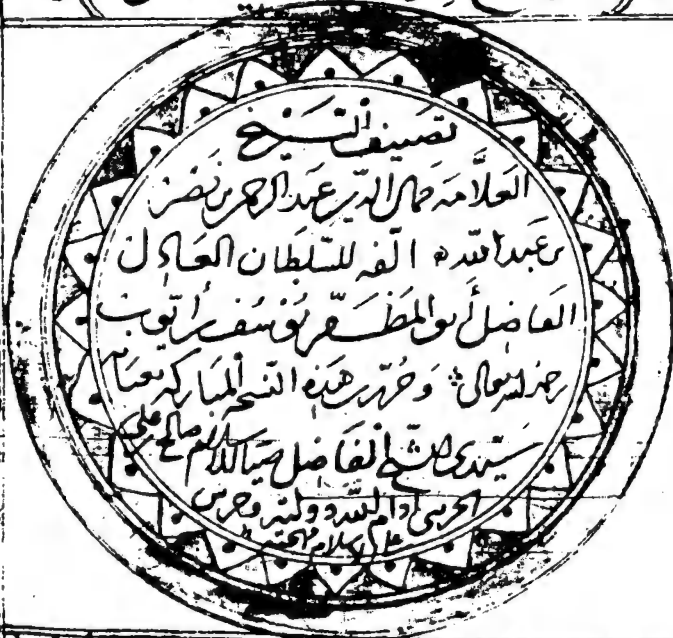 تصنيف الشيخ
العلامة جمال الدين عبد الرحمن بن نصر
بن عبد الله ألفه للسلطان العادل
الفاضل أبو المظفر يوسف بن أيوب
رحمه الله تعالى وحرر هذه النسخة المباركة
سيدى الشيخ الفاضل ضيا صالح بن على
الحربى أدام الله دولته وحرس
على